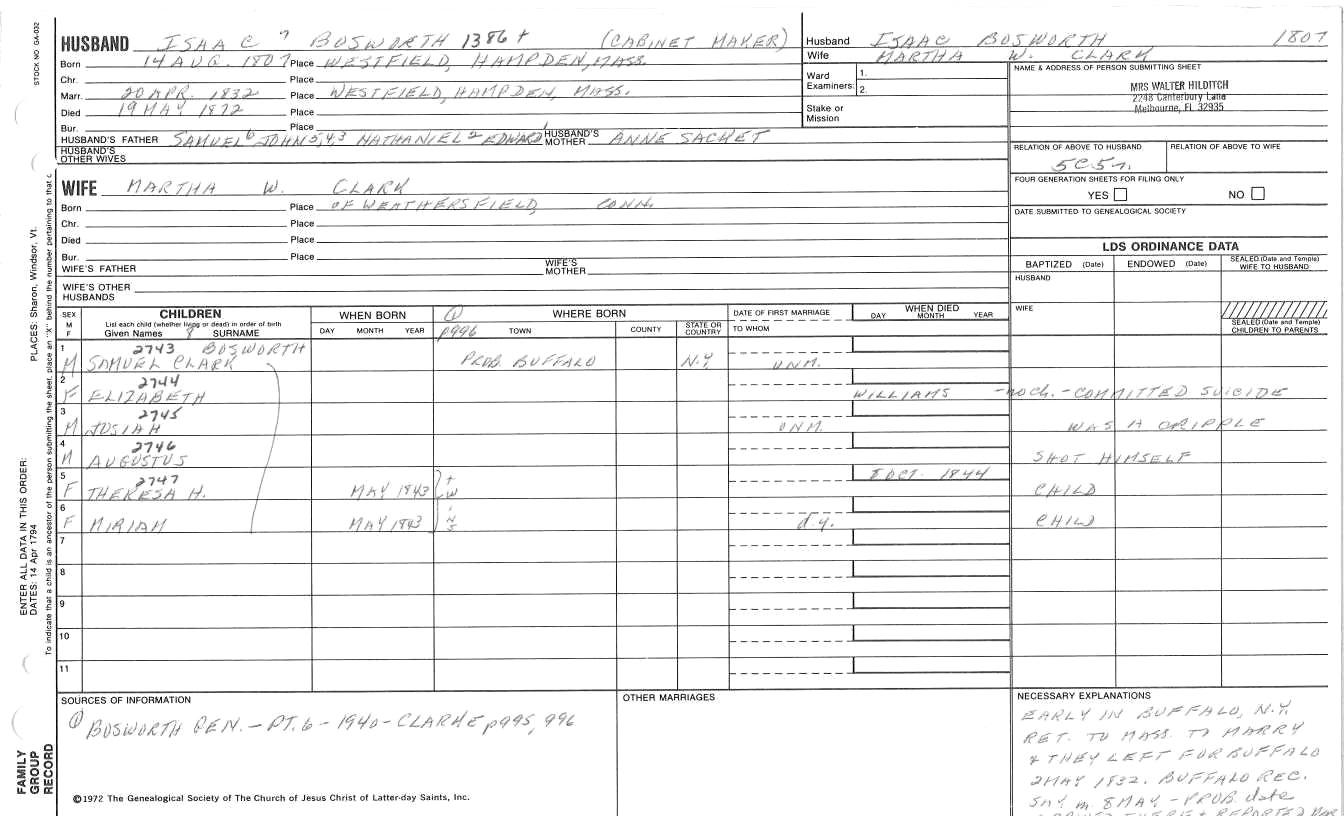 STOCK NO. GA-032
PLACES: Sharon, Windsor, Vt.
ENTER ALL DATA IN THIS ORDER:
DATES: 14 Apr 1794
To indicate that a child is an ancestor of the person submitting the sheet, place an "X" behind the number pertaining to that c
FAMILY GROUP RECORD
HUSBAND ISAAC 7 BOSWORTH 1386+ (CABINET MAKER)
Born 14 AUG. 1807 Place WESTFIELD, HAMPDEN, MASS.
Chr. Place
Marr. 20 APR. 1832 Place WESTFIELD, HAMPDEN, MASS.
Died 19 MAY 1872 Place
Bur. Place
HUSBAND'S FATHER SAMUEL 6 JOHN 5,4,3 NATHANIEL 2 EDWARD 1 HUSBAND'S MOTHER ANNE SACHET
HUSBAND'S OTHER WIVES
Husband ISAAC BOSWORTH 1807
Wife MARTHA W. CLARK
Ward Examiners: 1.
2.
Stake or Mission
NAME & ADDRESS OF PERSON SUBMITTING SHEET
MRS WALTER HILDITCH
2248 Canterbury Lane
Melbourne, FL 32935
RELATION OF ABOVE TO HUSBAND RELATION OF ABOVE TO WIFE
5C5r.
FOUR GENERATION SHEETS FOR FILING ONLY
YES NO
DATE SUBMITTED TO GENEALOGICAL SOCIETY
WIFE MARTHA W. CLARK
Born Place OF WEATHERSFIELD, CONN.
Chr. Place
Died Place
Bur. Place
WIFE'S FATHER WIFE'S MOTHER
WIFE'S OTHER HUSBANDS
LDS ORDINANCE DATA
BAPTIZED (Date) ENDOWED (Date) SEALED (Date and Temple) WIFE TO HUSBAND
HUSBAND
WIFE
SEALED (Date and Temple) CHILDREN TO PARENTS
SEX M F
CHILDREN
List each child (whether living or dead) in order of birth
Given Names 8 SURNAME
WHEN BORN
DAY MONTH YEAR
① p996
WHERE BORN
TOWN COUNTY STATE OR COUNTRY
DATE OF FIRST MARRIAGE
TO WHOM
WHEN DIED
DAY MONTH YEAR
1 2743 BOSWORTH
M SAMUEL CLARK PROB. BUFFALO N.Y. UNM.
2 2744
F ELIZABETH WILLIAMS -no ch.-COMMITTED SUICIDE
3 2745
M JOSIAH UNM. WAS A CRIPPLE
4 2746
M AUGUSTUS SHOT HIMSELF
5 2747 8 OCT. 1844
F THERESA H. MAY 1843 TWINS CHILD
6
F MIRIAM MAY 1843 d.y. CHILD
7
8
9
10
11
SOURCES OF INFORMATION
① BOSWORTH GEN. - PT. 6 - 1940 - CLARKE p995, 996
OTHER MARRIAGES
NECESSARY EXPLANATIONS
EARLY IN BUFFALO, N.Y.
RET. TO MASS. TO MARRY
& THEY LEFT FOR BUFFALO
2 MAY 1832. BUFFALO REC.
SAY m. 8 MAY - PROB. date
©1972 The Genealogical Society of The Church of Jesus Christ of Latter-day Saints, Inc.